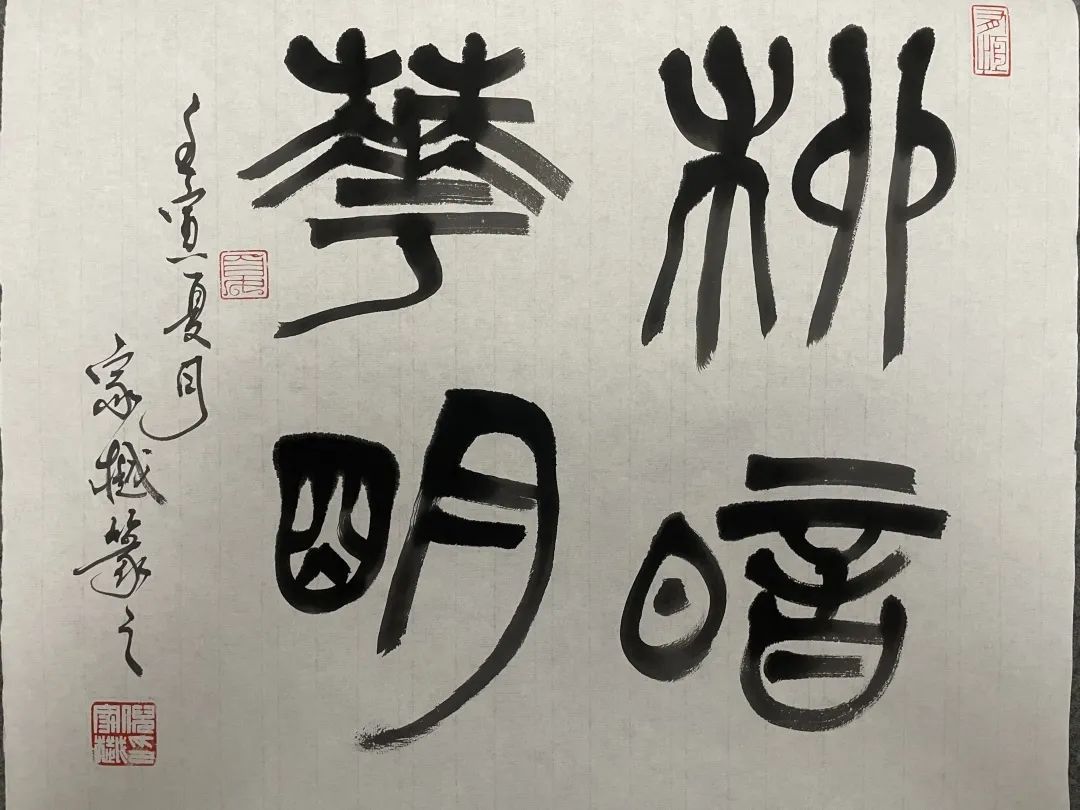 柳暗
華明
壬寅夏月
家樾篆之